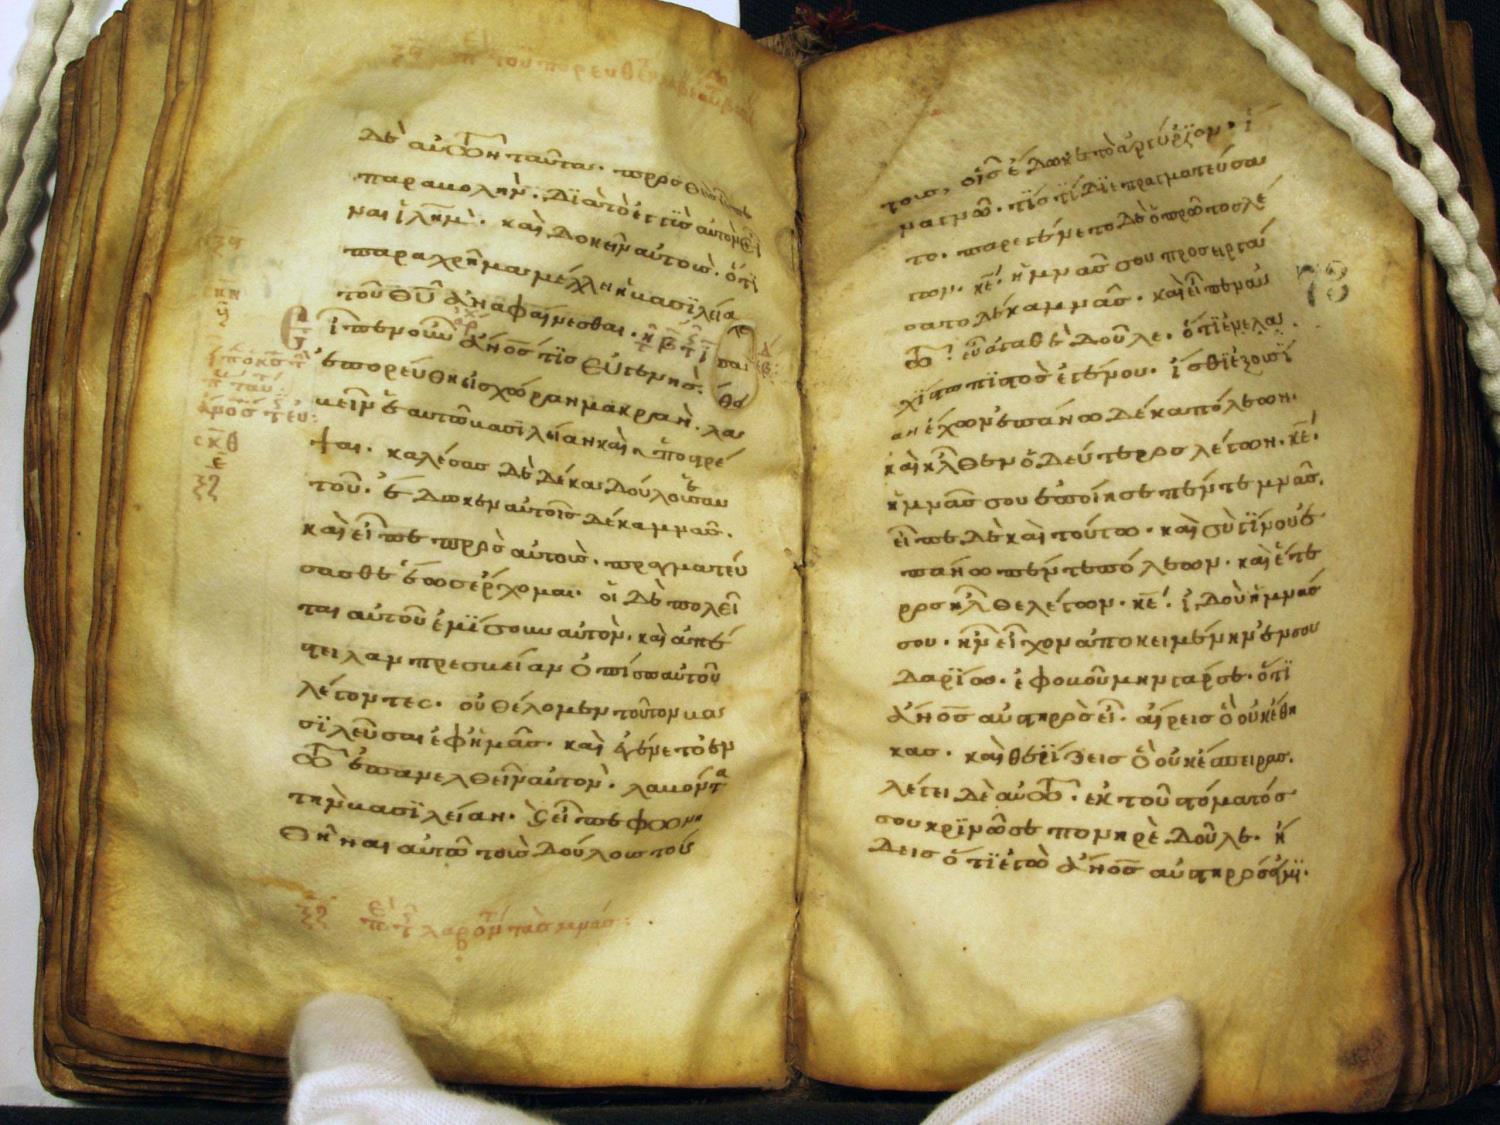 δὲ αὐτῶν ταῦτα. προσθεὶς εἶπε
παραβολὴν. διὰ τὸ ἐγγὺς αὐτὸν εἶ
ναι ἱλὴμ. καὶ δοκεῖν αὐτοὺς. ὅτι
παραχρῆμα μέλλη ἡ βασιλεία
τοῦ θυ ἀναφαίνεσθαι.
Εἶπεν οὖν ἄνος τὶς εὐγενὴς.
ἐπορεύθη εἰς χώραν μακρὰν. λα
βεῖν ἑαυτῶ βασιλείαν καὶ ὑποστρέ
ψαι. καλέσας δὲ δέκα δούλους ἑαυ
τοῦ. ἔδωκεν αὐτοῖς δέκα μνᾶς.
καὶ εἶπε πρὸς αὐτοὺς. πραγματεύ
σασθε ἕως ἔρχομαι. οἱ δὲ πολῖ
ται αὐτοῦ ἐμίσουν αὐτὸν. καὶ ἀπέ
στειλαν πρεσβείαν ὀπίσω αὐτοῦ
λέγοντες. οὐ θέλομεν τοῦτον βα
σιλεῦσαι ἐφ ἡμᾶς. καὶ ἐγένετο ἐν
τῶ ἐπανελθεῖν αὐτὸν. λαβόντα
τὴν βασιλείαν. καὶ εἶπε φωνη
θῆναι αὐτῶ τοὺς δούλους τού
ξζ λαβόντων τὰς μνάς:
τους, οἷς ἔδωκε τὸ ἀργύριον. ἵ
να γνῶ. τίς τί διεπραγματεύσα
το. παρεγένετο δὲ ὁ πρῶτος λέ
γων. κε. ἡ μνᾶ σου προσειργά
σατο δέκα μνᾶς. καὶ εἶπεν αὐ
τῶ. εὖ ἀγαθὲ δοῦλε. ὅτι ἐν ἐλα
χίστω πιστὸς ἐγένου. ἴσθι ἐξουσί
αν ἔχων ἐπάνω δέκα πόλεων.
καὶ ἦλθεν ὁ δεύτερος λέγων. κε.
ἡ μνᾶ σου ἐποίησε πέντε μνᾶς.
εἶπε δὲ καὶ τούτω. καὶ σὺ γίνου ἐ
πάνω πέντε πόλεων. καὶ ἕτε
ρος ἦλθε λέγων. κε. ἰδοὺ ἡ μνᾶ
σου. ἣν εἶχον ἀποκειμένην ἐν σου
δαρίω. ἐφοβούμην γάρ σε. ὅτι
ἄνος αὐστηρὸς εἶ. αἴρεις ὃ οὐκ ἔθη
κας. καὶ θερίζεις ὃ οὐκ ἔσπειρας.
λέγει δὲ αὐτῶ. ἐκ τοῦ στόματός
σου κρινῶ σε πονηρὲ δοῦλε. ἤ
δεις ὅτι ἐγὼ ἄνος αὐστηρός εἰμι.
78